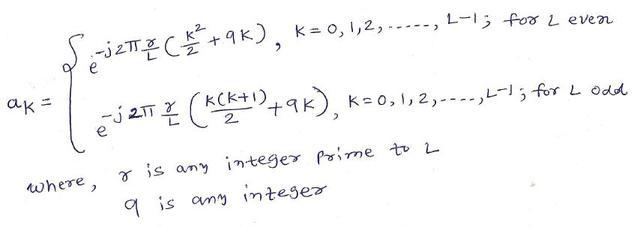 e^{-j2π r/L (k²/2 + qk)}, k = 0, 1, 2, -----, L-1; for L even
a_k =
e^{-j2π r/L (k(k+1)/2 + qk)}, k = 0, 1, 2, ----, L-1; for L odd
where, r is any integer prime to L
q is any integer